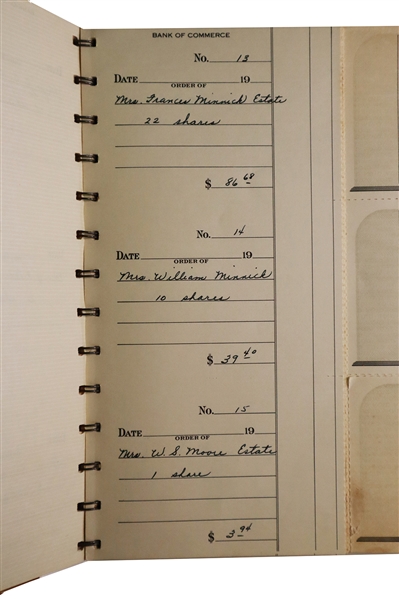 BANK OF COMMERCE
No. 13
DATE 19
ORDER OF
Mrs. Frances Minnich Estate
22 shares
$ 86 68
No. 14
DATE 19
ORDER OF
Mrs. William Minnich
10 shares
$ 39 40
No. 15
DATE 19
ORDER OF
Mrs. W. S. Moore Estate
1 share
$ 3 94